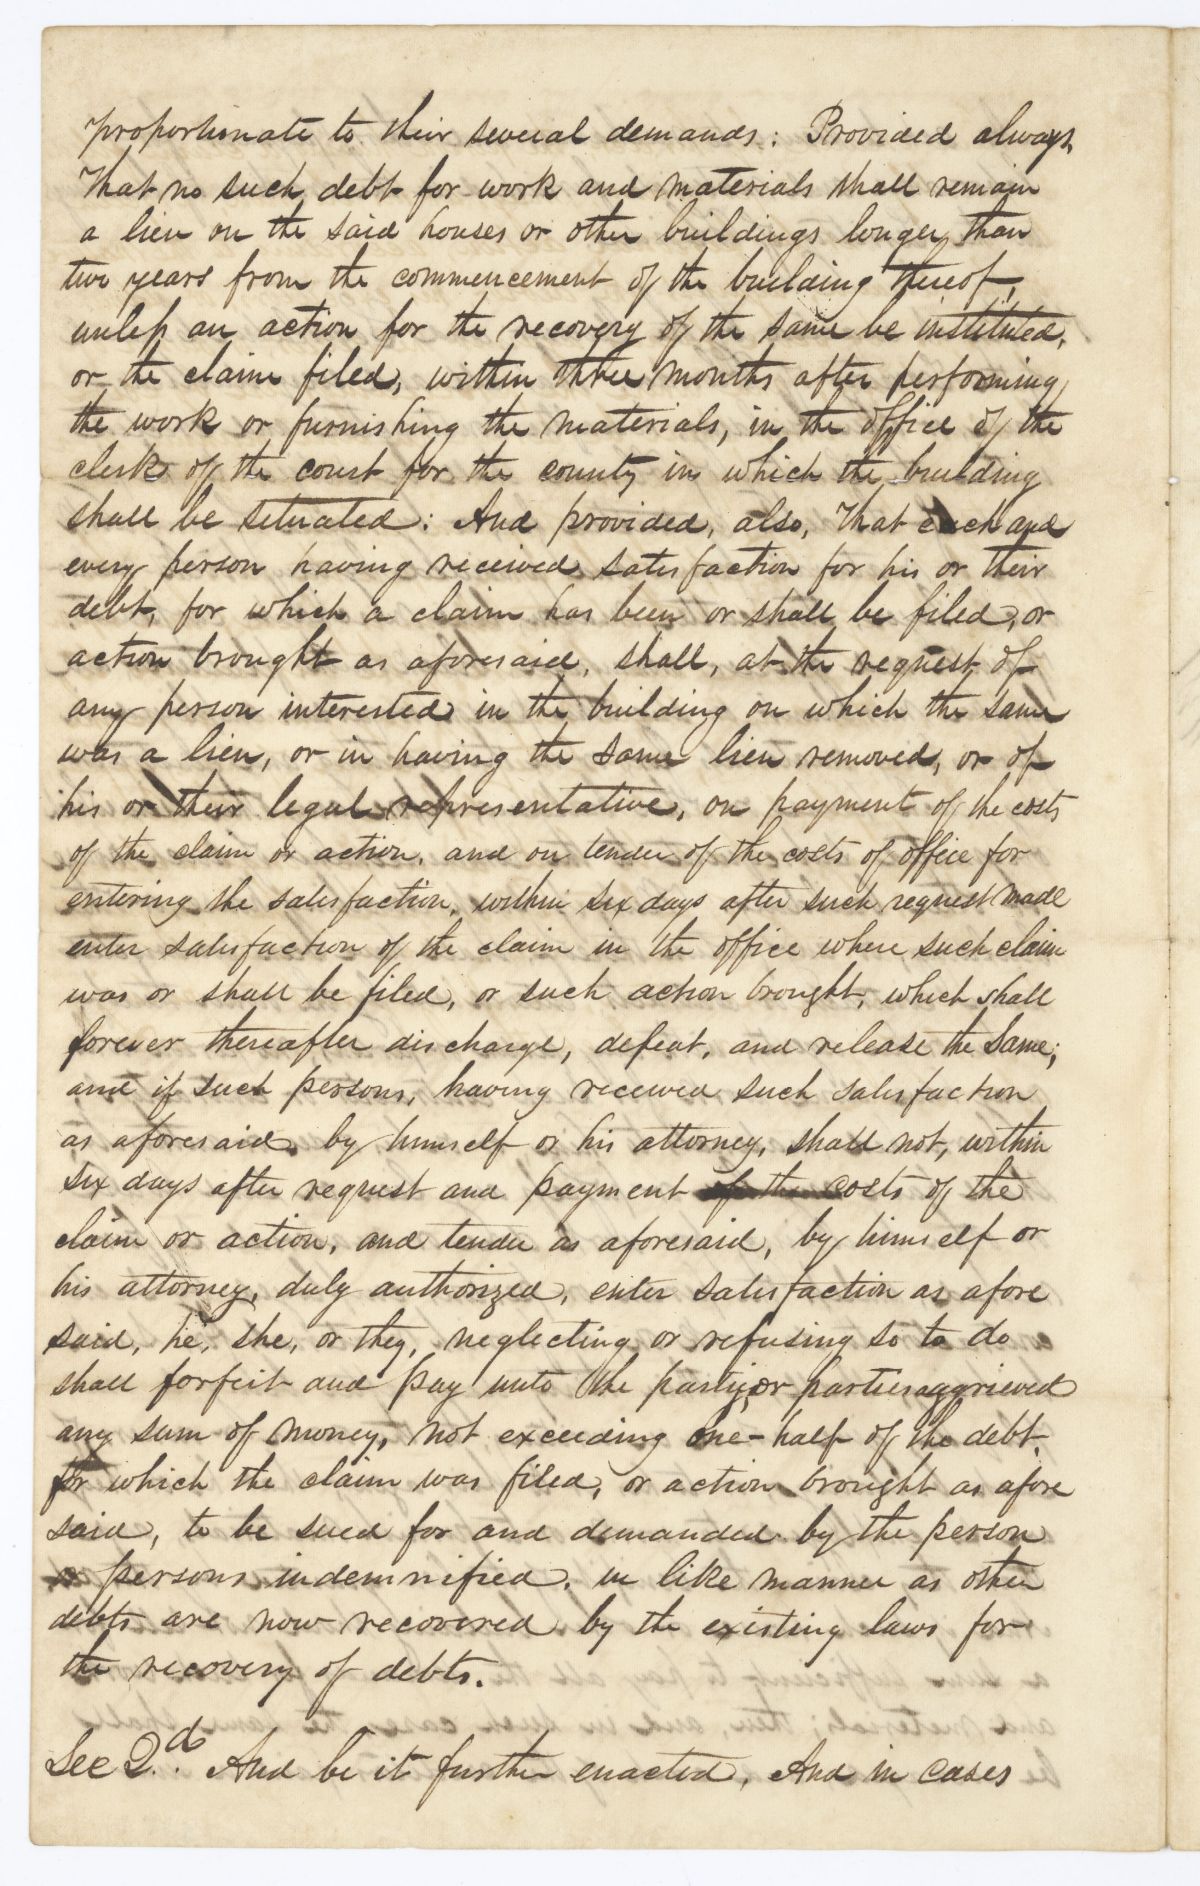 proportionate to their several demands: Provided always,
That no such debt for work and materials shall remain
a lien on the said houses or other buildings longer than
two years from the commencement of the building thereof,
unless an action for the recovery of the same be instituted,
or the claim filed, within three months after performing
the work or furnishing the materials, in the office of the
clerk of the court for the county in which the building
shall be situated: And provided, also, That each and
every person having received satisfaction for his or their
debt, for which a claim has been or shall be filed, or
action brought as aforesaid, shall, at the request of
any person interested in the building on which the same
was a lien, or in having the same lien removed, or of
his or their legal representative, on payment of the costs
of the claim or action, and on tender of the costs of office for
entering the satisfaction, within six days after such request made
enter satisfaction of the claim in the office where such claim
was or shall be filed, or such action brought, which shall
forever thereafter discharge, defeat, and release the same;
and if such persons, having received such satisfaction
as aforesaid, by himself or his attorney, shall not, within
six days after request and payment of the costs of the
claim or action, and tender as aforesaid, by himself or
his attorney, duly authorized, enter satisfaction as afore
said, he, she, or they, neglecting or refusing so to do
shall forfeit and pay unto the party, or parties aggrieved
any sum of money, not exceeding one-half of the debt,
for which the claim was filed, or action brought as afore
said, to be sued for and demanded by the person
or persons indemnified, in like manner as other
debts are now recovered by the existing laws for
the recovery of debts.
Sec 2.d. And be it further enacted, And in cases